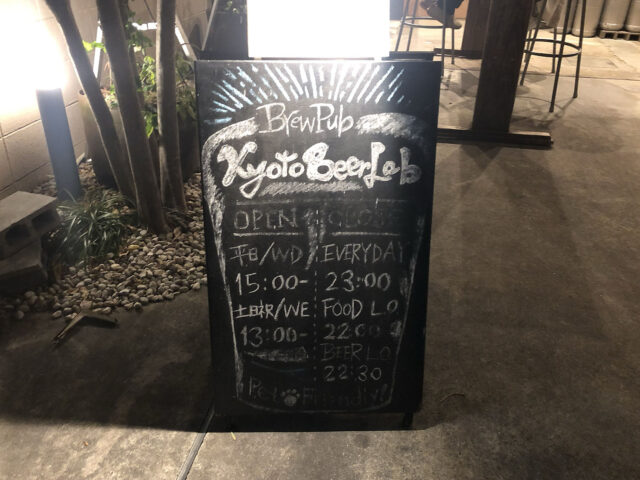 BrewPub
Kyoto Beer Lab
OPEN CLOSE
平日/WD EVERYDAY
15:00- 23:00
土日祝/WE FOOD L.O
13:00- 22:00
BEER L.O
22:30
Pet Friendly!